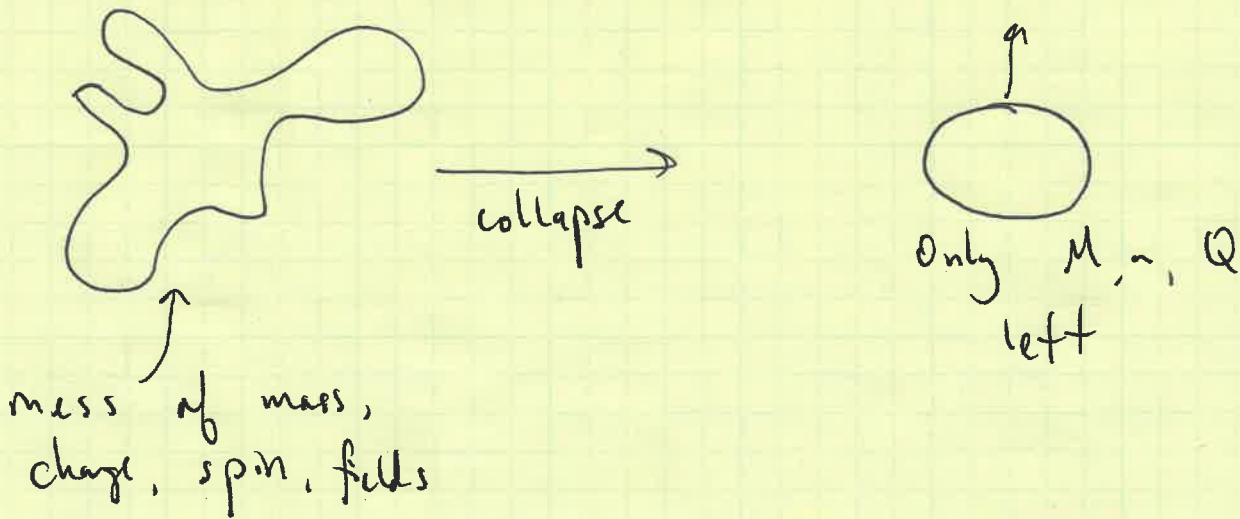 collapse
Only M, a, Q
left
mess of mass,
charge, spin, fields